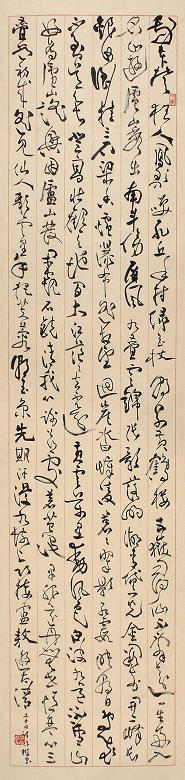 我本楚狂人鳳歌笑孔丘手持綠玉杖朝別黃鶴樓五嶽尋仙不辭遠一生好入
名山遊廬山秀出南斗傍屏風九疊雲錦張影落明湖青黛光金闕前開二峰長
銀河倒掛三石梁香爐瀑布遙相望迴崖沓嶂凌蒼蒼翠影紅霞映朝日鳥飛不
到吳天長登高壯觀天地間大江茫茫去不還黃雲萬里動風色白波九道流雪山
好為廬山謠興因廬山發閑窺石鏡清我心謝公行處蒼苔沒早服還丹無世情琴心三
疊道初成遙見仙人彩雲裏手把芙蓉朝玉京先期汗漫九垓上願接盧敖遊太清